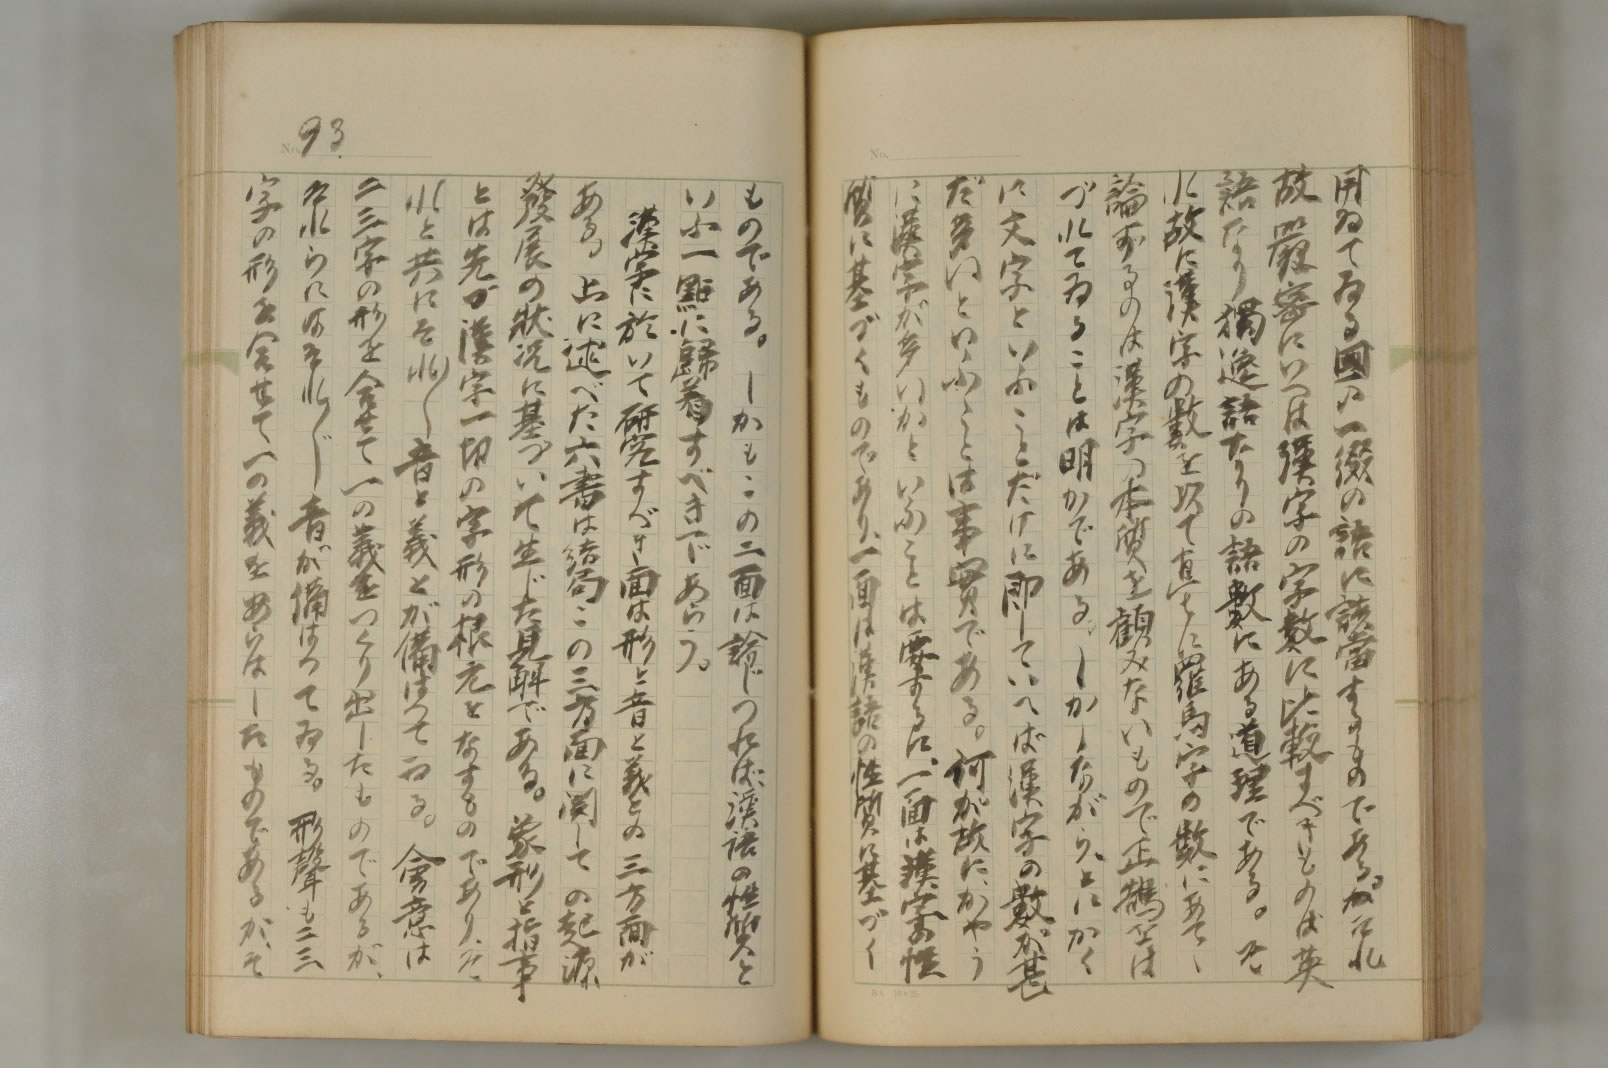 用ゐてゐる國の一綴の語に該當するものである。かくれ
故嚴密にいへは漢字の字數に比較すべきものは英
語なり獨逸語なりの語數にある道理である。そ
れ故に漢字の數を以て直ちに羅馬字の數にあてゝ
論ずるのは漢字の本質を顧みないもので正鵠をは
づれてゐることは明かである。しかしながら、とにかく
に文字といふことだけに即していへば漢字の數が甚
だ多いといふことは事實である。何が故に、かやう
に漢字が多いかといふことは要するに、一面は漢字の性
質に基づくものであり、一面は漢語の性質に基づく
No. 93
ものである。しかもこの二面は論じつれば漢語の性質と
いふ一點に歸着すべきであらう。
漢字に於いて研究すべき面は形と音と義との三方面が
ある。上に述べた六書は結局この三方面に関しての起源
發展の狀況に基づいて生じた見解である。象形と指事
とは先づ漢字一切の字形の根元をなすものであり、そ
れと共にそれ／＼音と義とが備はつてゐる。會意は
二三字の形を合せて一の義をつくり出したものであるが、
それらにはそれ／＼音が備はつてゐる。形聲も二三
字の形を合せて一の義をあらはしたものであるが、そ
No.